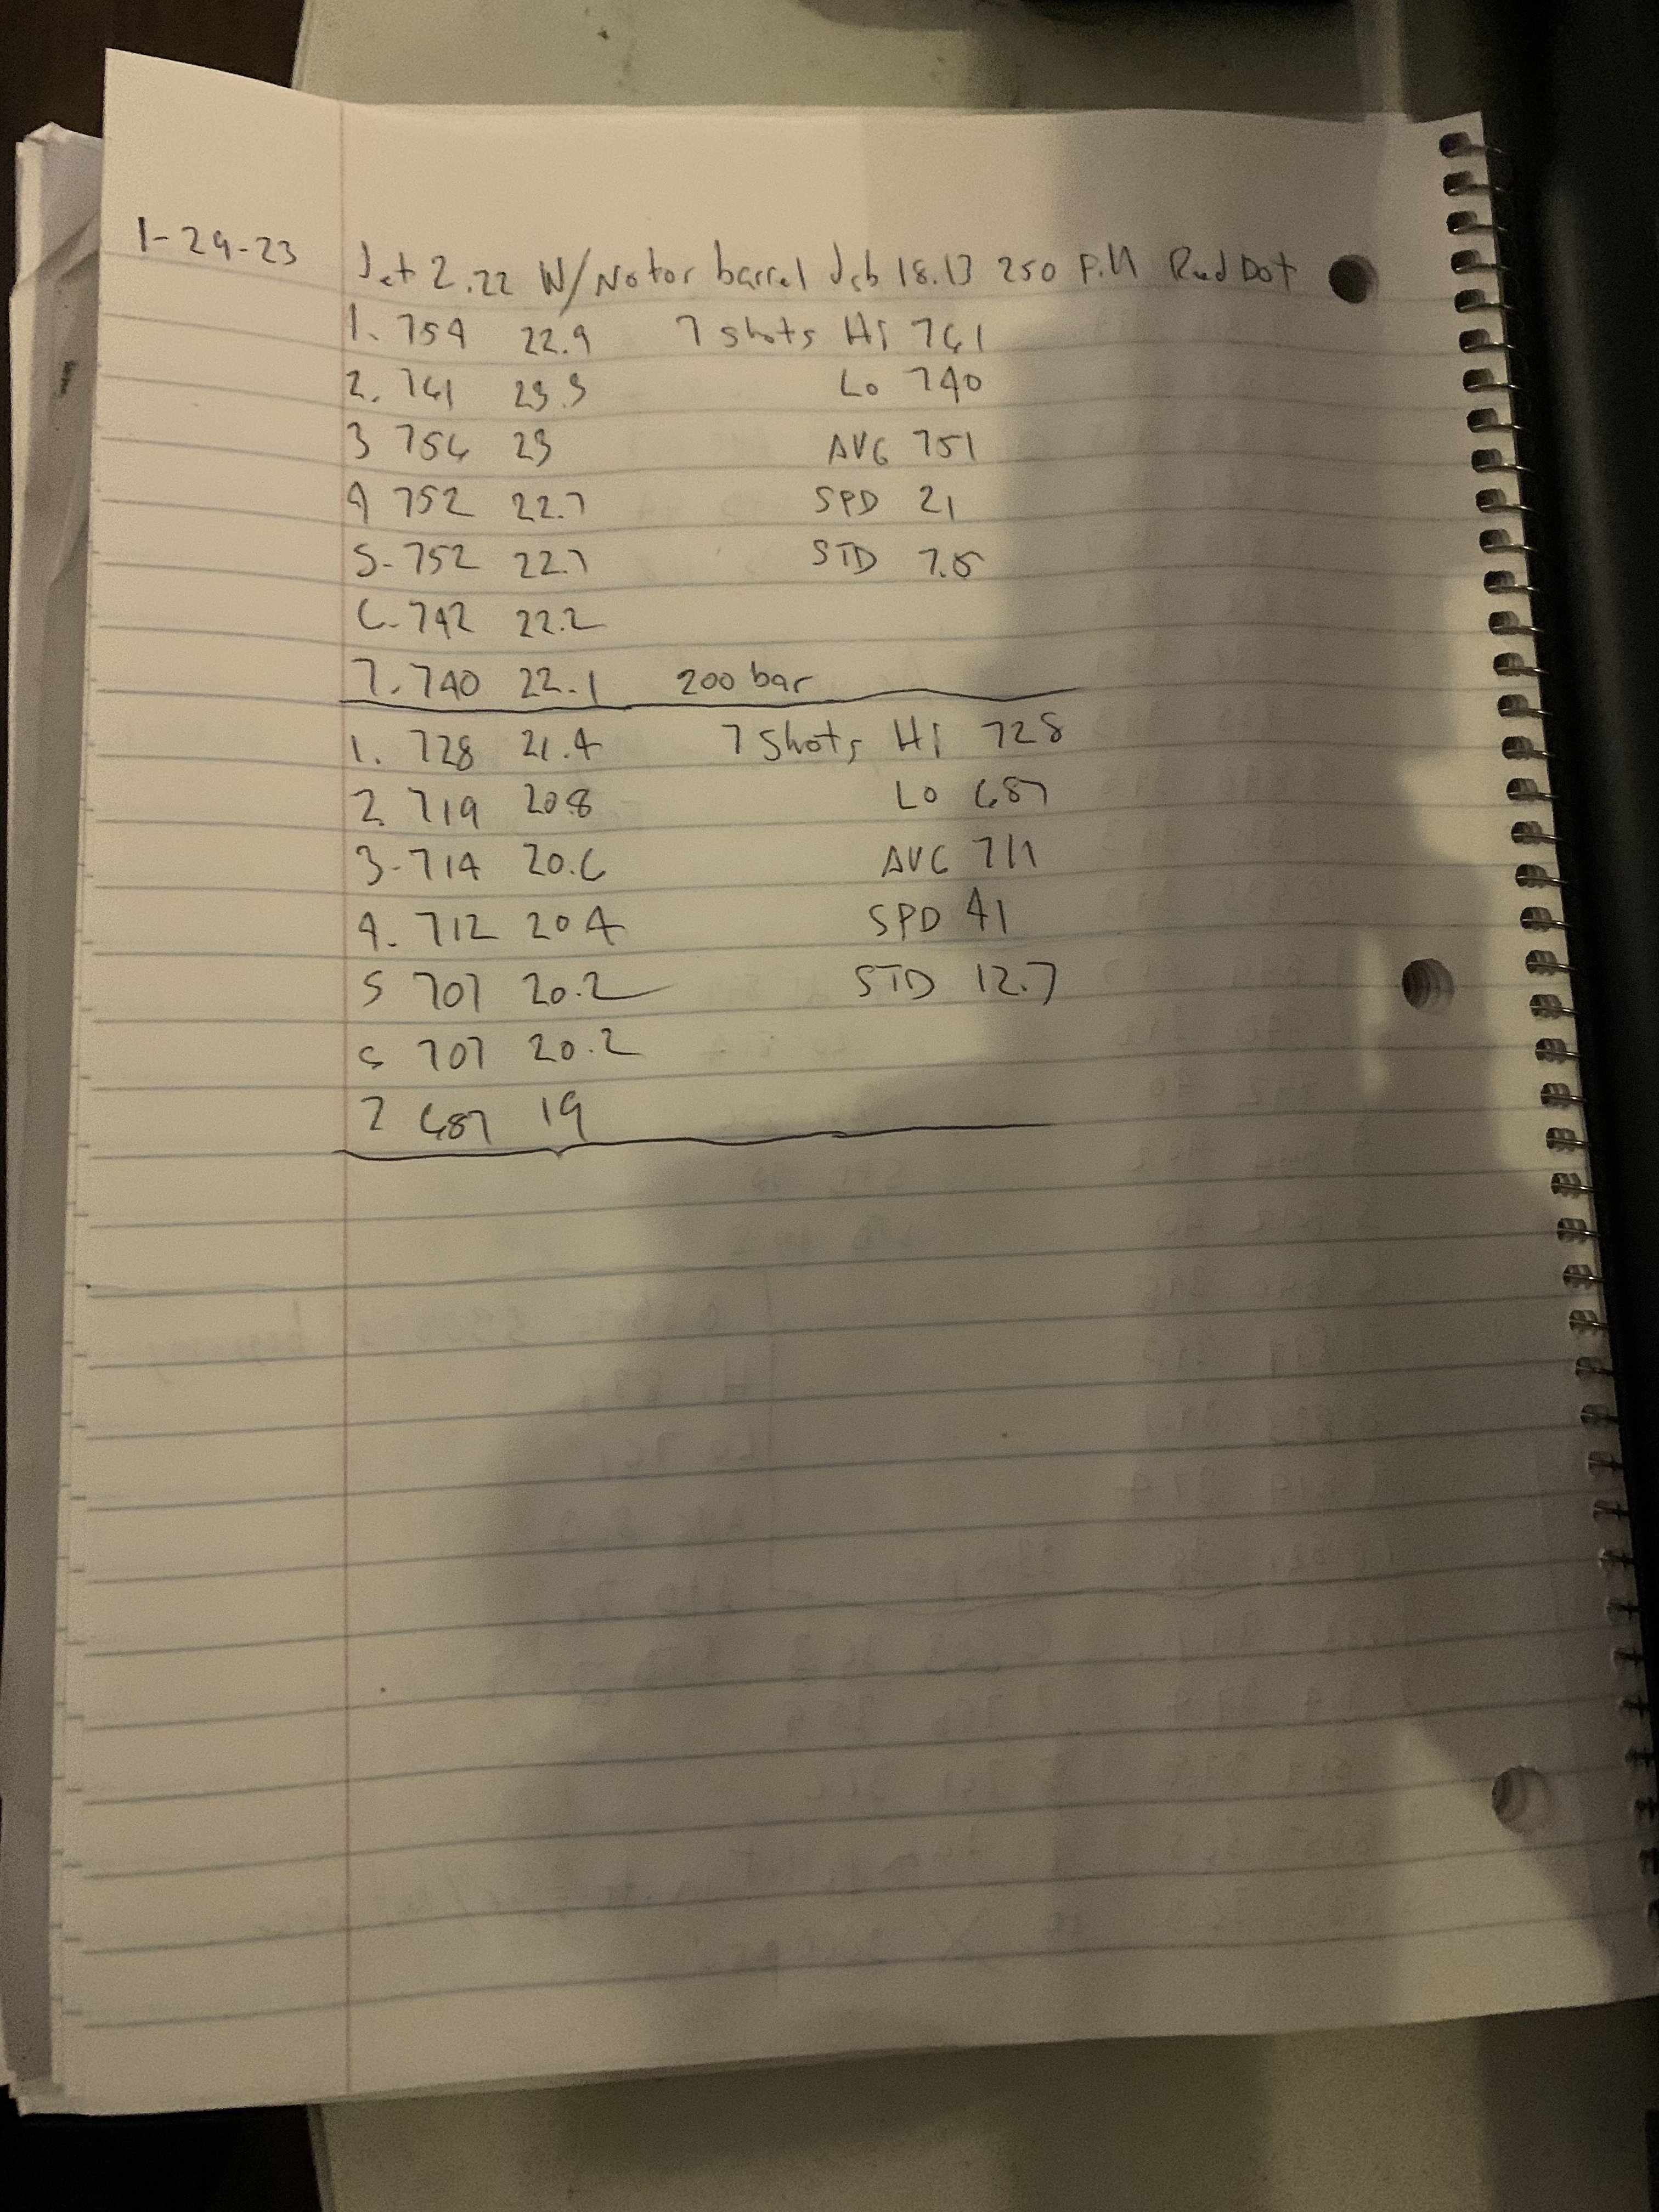 1-29-23
Jet 2.22 W/Notor barrel Jsb 18.13 250 Fill Red Dot
1. 754 22.9 7 shots Hi 761
2. 761 23.3 Lo 740
3 756 23 AVG 751
4 752 22.7 SPD 21
5-752 22.7 STD 7.5
6-742 22.2
7.740 22.1 200 bar
1. 728 21.4 7 Shots Hi 728
2. 719 20.8 Lo 687
3-714 20.6 AVG 711
4. 712 20.4 SPD 41
5 707 20.2 STD 12.7
6 707 20.2
7 687 19